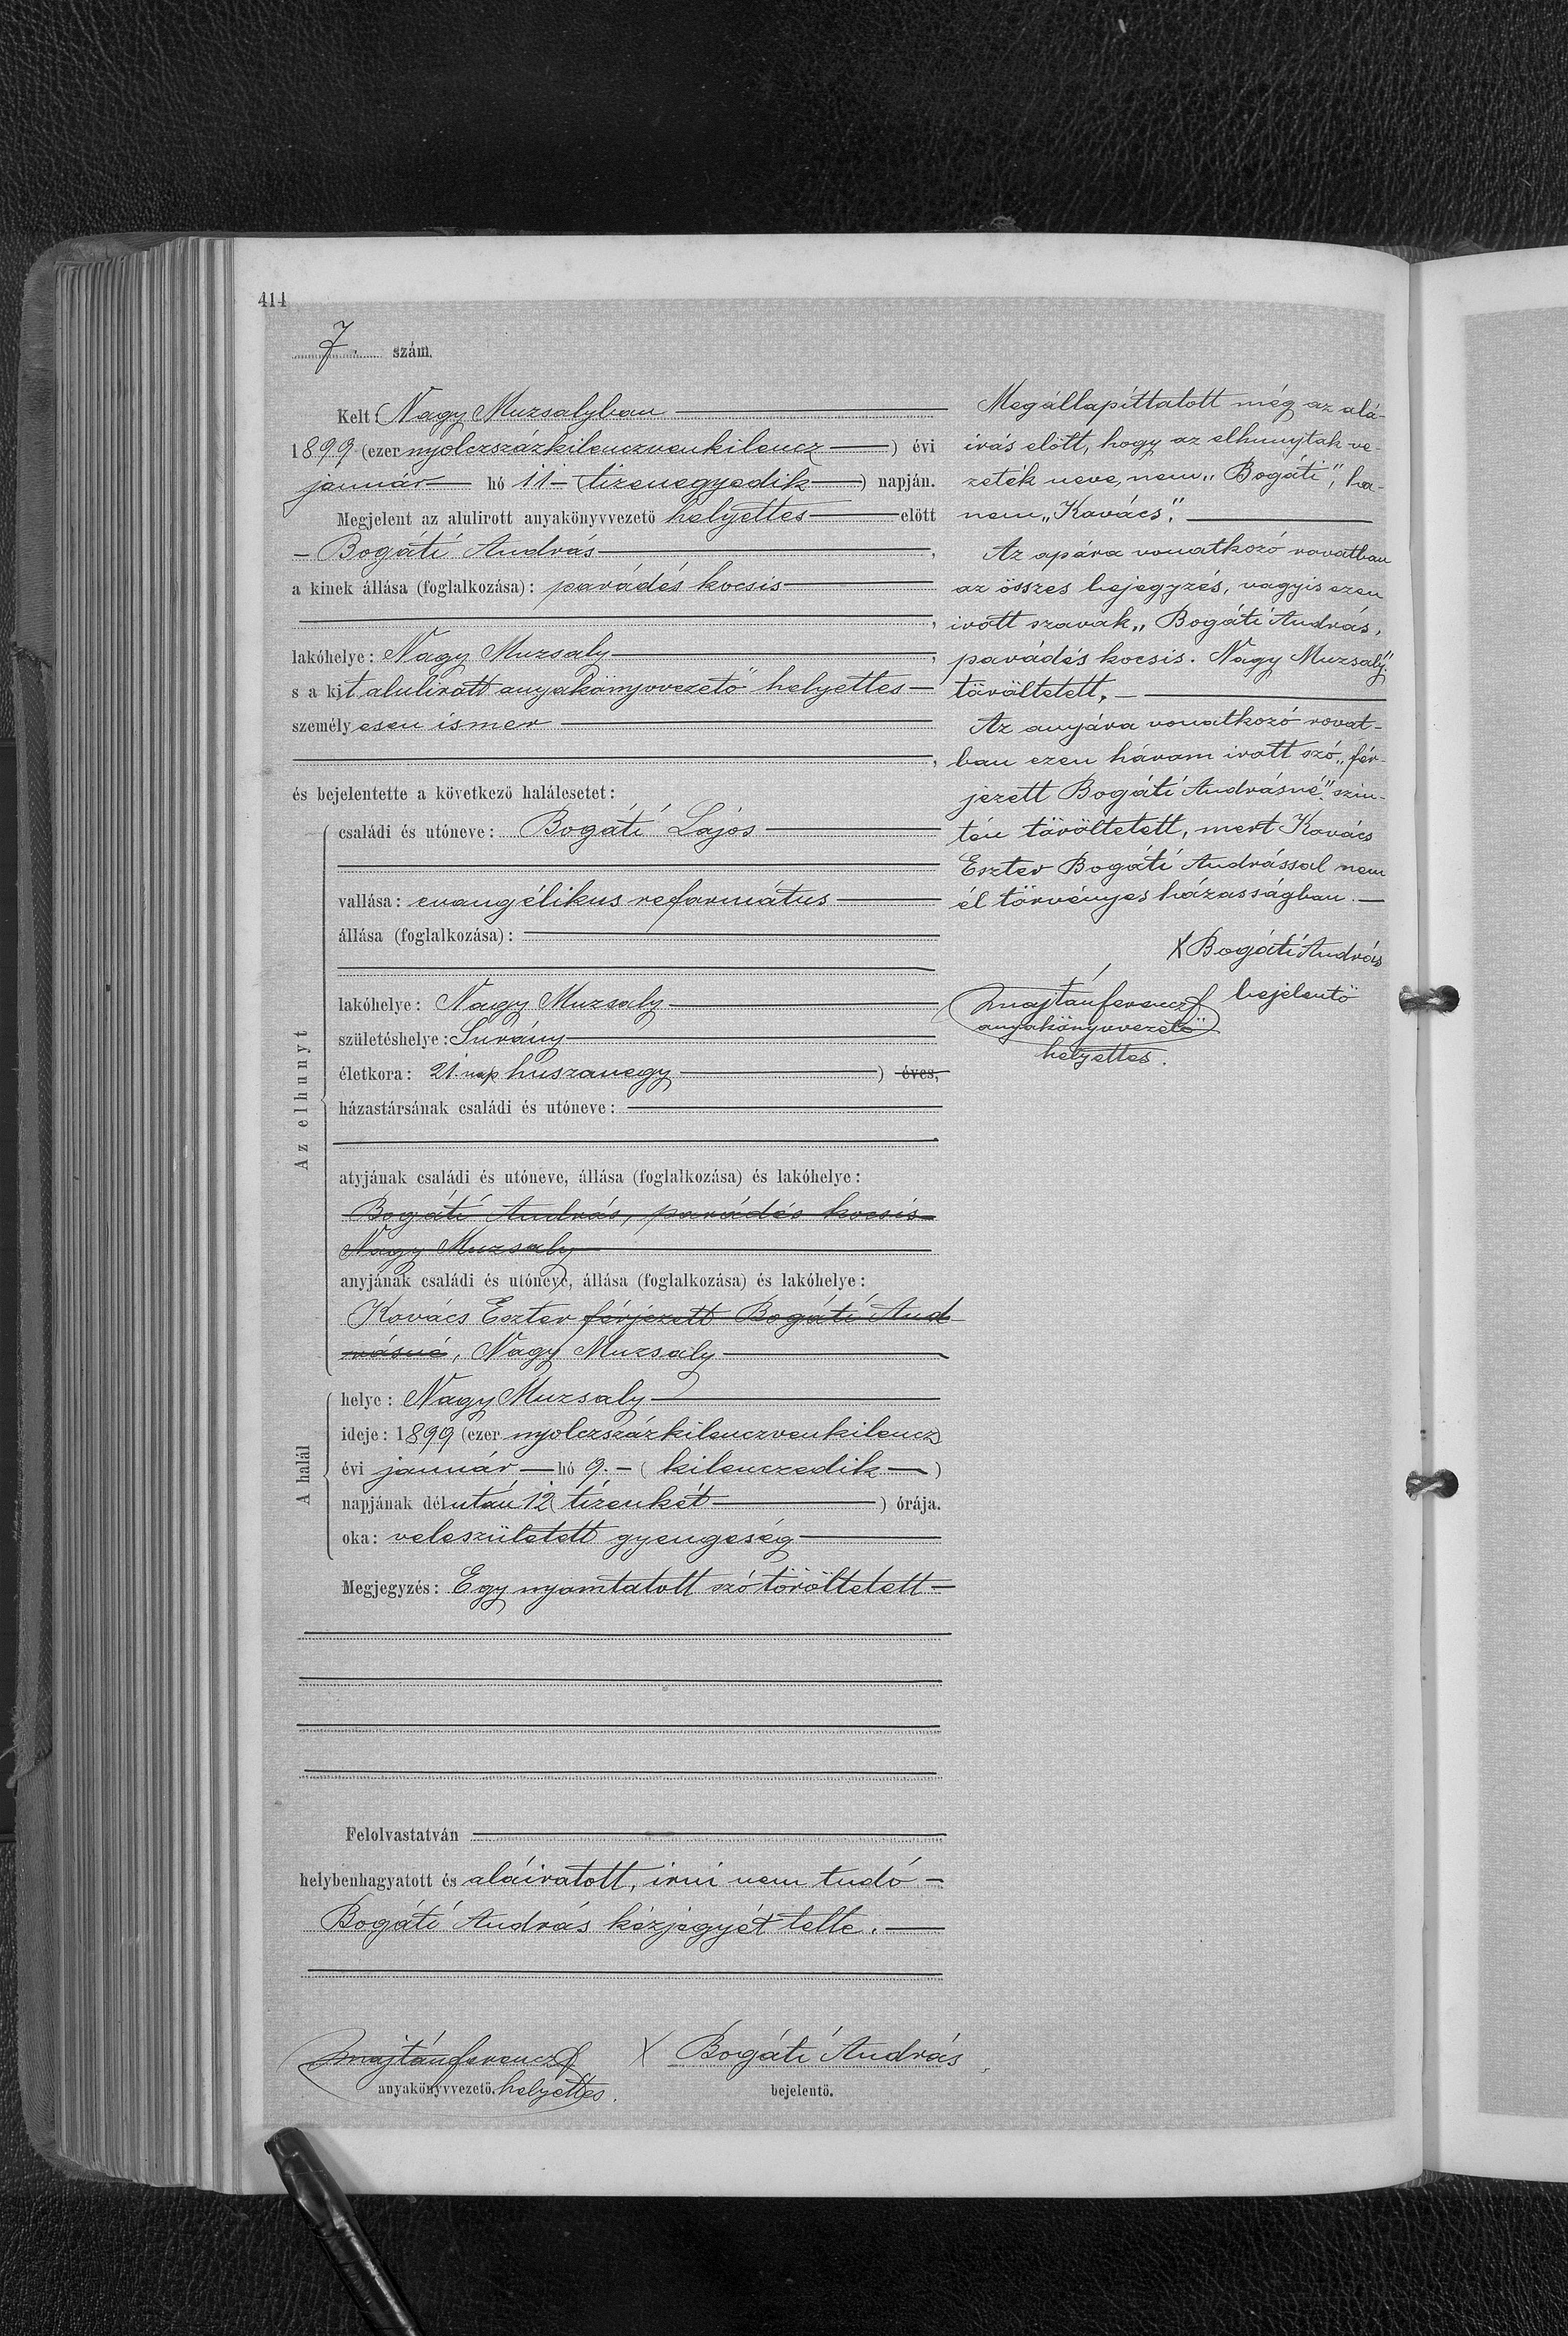 414
7. szám.
Kelt: Nagy Muzsalyban
1899 (ezer nyolczszázkilenczvenkilencz) évi
január hó 11 (tizenegyedik) napján.
Megjelent az alulirott anyakönyvvezető helyettes előtt
Bogáti András,
a kinek állása (foglalkozása): parádés kocsis
,
lakóhelye: Nagy Muzsaly,
s a kit alulirott anyakönyvvezető helyettes
személyesen ismer
,
és bejelentette a következő halálesetet:
Az elhunyt
családi és utóneve: Bogáti Lajos
vallása: evangélikus református
állása (foglalkozása):
lakóhelye: Nagy Muzsaly
születéshelye: Surány
életkora: 21 nap huszonegy) éves,
házastársának családi és utóneve:
atyjának családi és utóneve, állása (foglalkozása) és lakóhelye:
Bogáti András, parádés kocsis
Nagy Muzsaly
anyjának családi és utóneve, állása (foglalkozása) és lakóhelye:
Kovács Eszter férjezett Bogáti And-
rásné, Nagy Muzsaly
A halál
helye: Nagy Muzsaly
ideje: 1899 (ezer nyolczszázkilenczvenkilencz)
évi január hó 9. (kilenczedik)
napjának délután 12 (tizenkét) órája.
oka: veleszületett gyengeség
Megjegyzés: Egy nyomtatott szó töröltetett
Felolvastatván
helybenhagyatott és aláiratott, irni nem tudó
Bogáti András kézjegyét tette.
Majtán Ferencz
anyakönyvvezető. helyettes.
X Bogáti András
bejelentő.
Megállapíttatott még az alá-
irás előtt, hogy az elhunytak ve-
zeték neve, nem „Bogáti”, ha-
nem „Kovács”.
Az apára vonatkozó rovatban
az összes bejegyzés, vagyis ezen
irott szavak „Bogáti András,
parádés kocsis. Nagy Muzsaly”
töröltetett.
Az anyára vonatkozó rovat-
ban ezen három irott szó „fér-
jezett Bogáti Andrásné” szin-
tén töröltetett, mert Kovács
Eszter Bogáti Andrással nem
él törvényes házasságban.
X Bogáti András
bejelentő
Majtán Ferencz
anyakönyvvezető
helyettes.